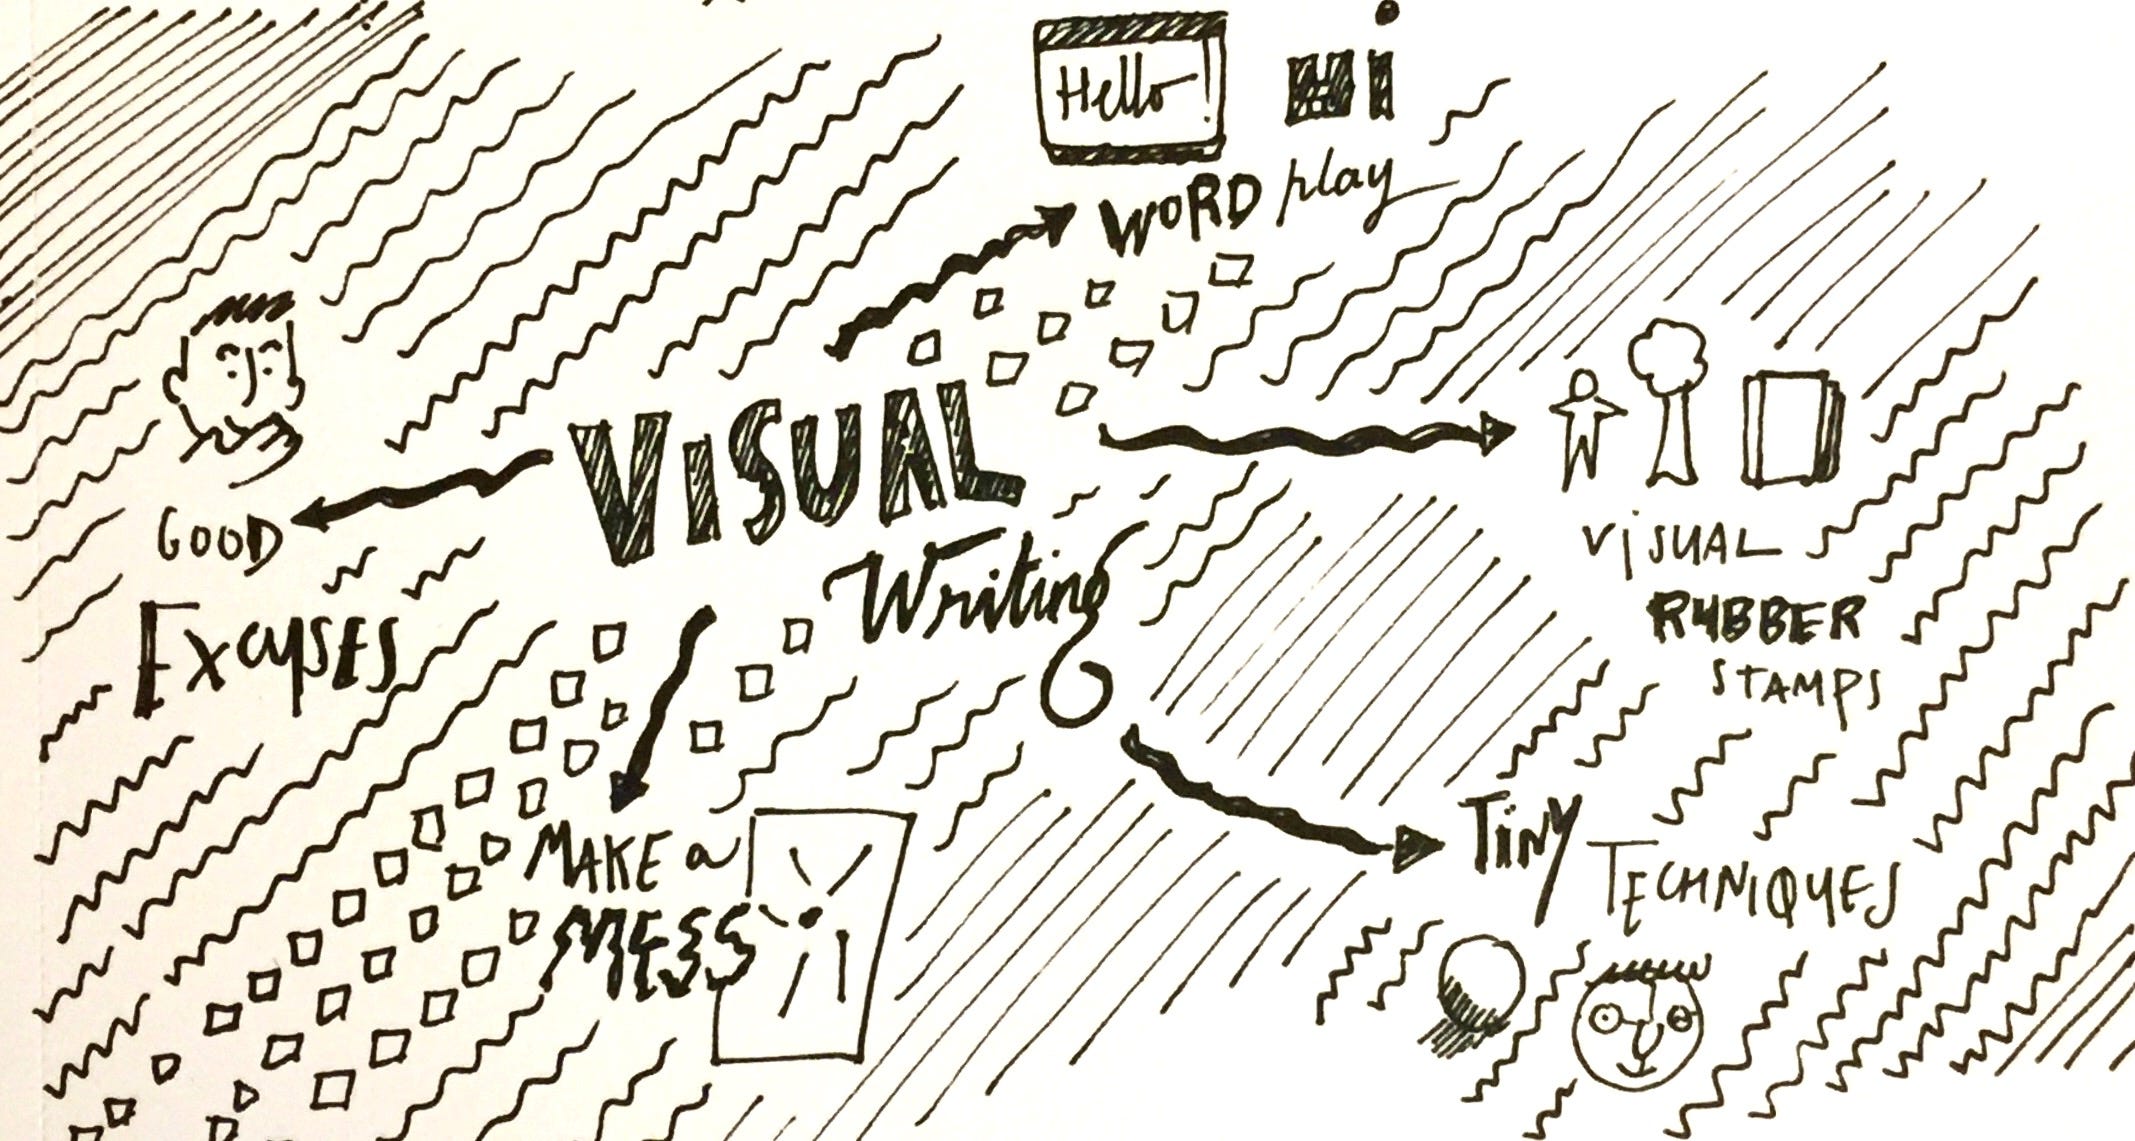 Hello!
Hi
WORD play
ViSUAL
Writing
GOOD
EXCUSES
ViSUAL
RUBBER
STAMPS
MAKE a
MESS
TiNY
TECHNIQUES